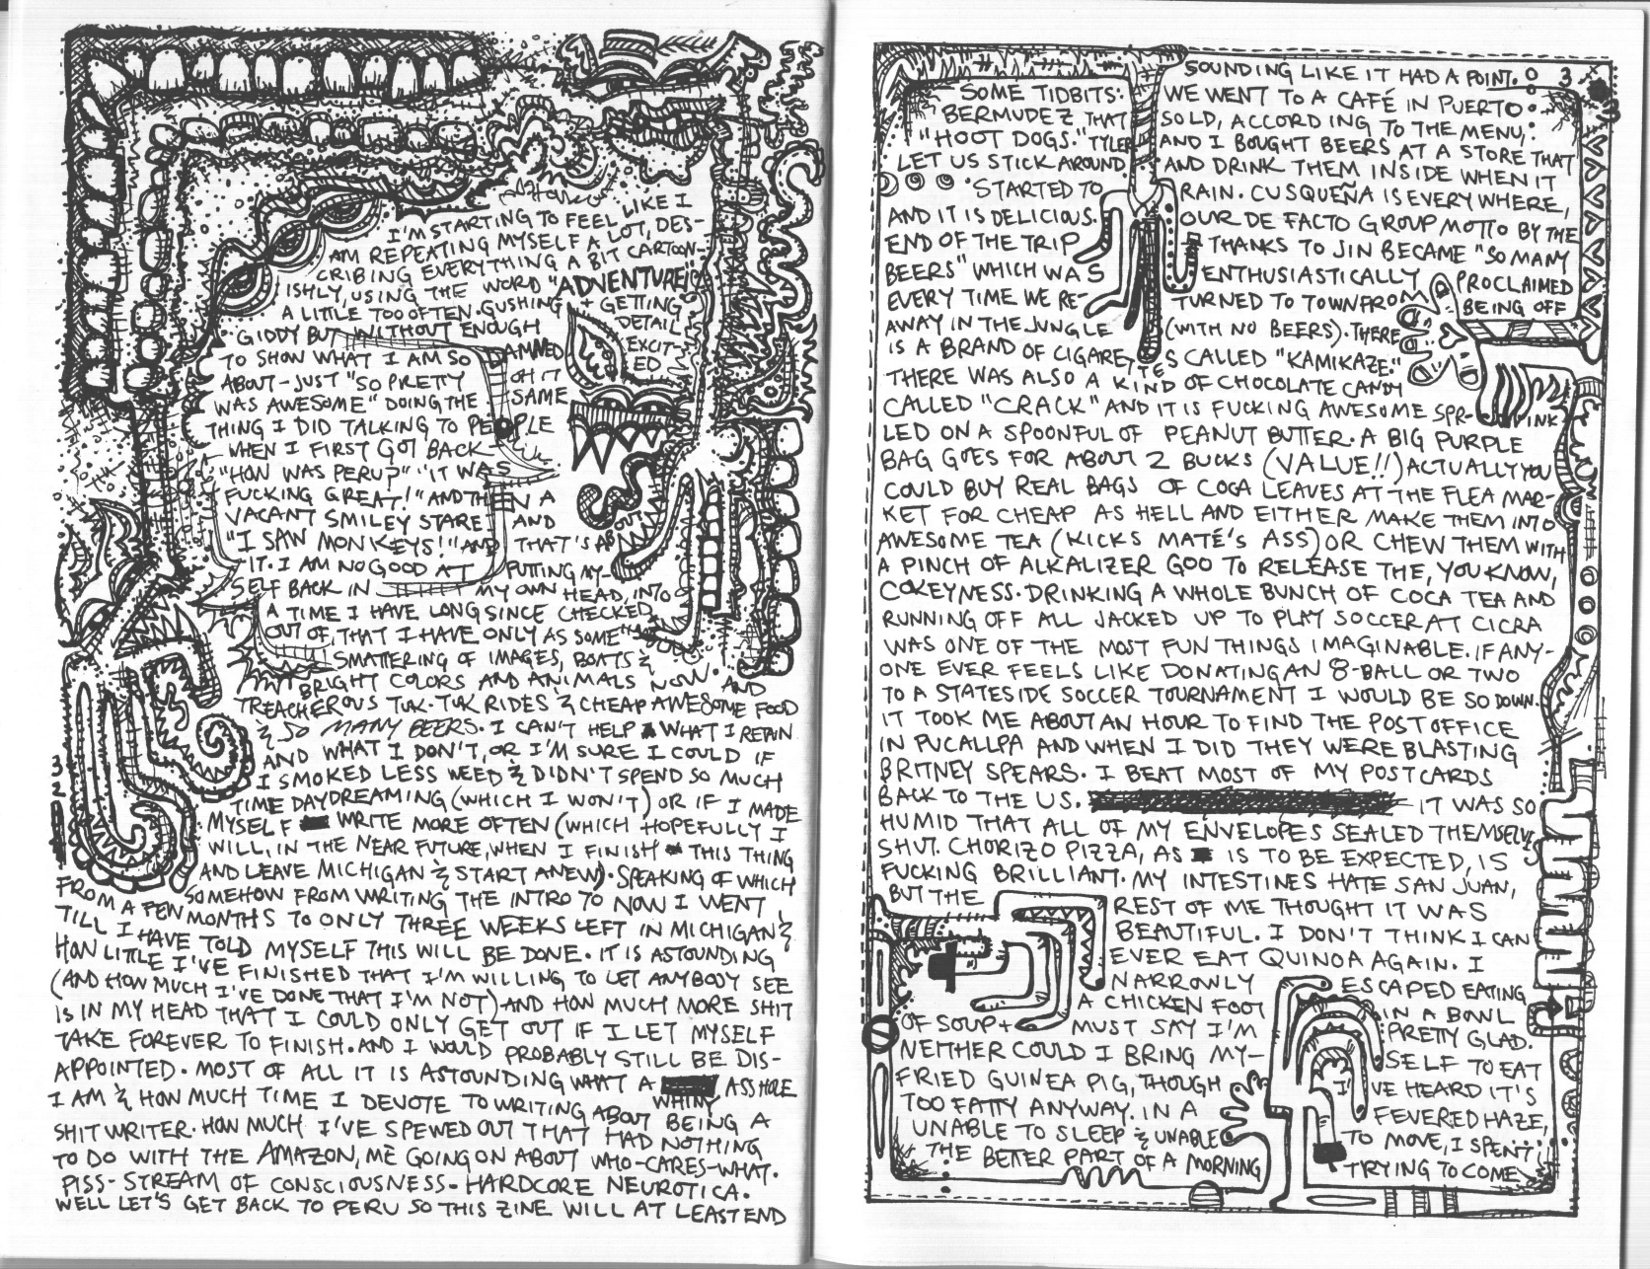 I'M STARTING TO FEEL LIKE I
AM REPEATING MYSELF A LOT, DES-
CRIBING EVERYTHING A BIT CARTOON-
ISHLY, USING THE WORD "ADVENTURE!"
A LITTLE TOO OFTEN. GUSHING + GETTING
GIDDY BUT WITHOUT ENOUGH DETAIL
TO SHOW WHAT I AM SO DAMNED EXCIT-
ED
ABOUT - JUST "SO PRETTY OH IT
WAS AWESOME" DOING THE SAME
THING I DID TALKING TO PEOPLE
WHEN I FIRST GOT BACK -
"HOW WAS PERU?" "IT WAS
FUCKING GREAT!" AND THEN A
VACANT SMILEY STARE AND
"I SAW MONKEYS!" AND THAT'S ABOUT
IT. I AM NO GOOD AT PUTTING MY-
SELF BACK IN MY OWN HEAD, INTO
A TIME I HAVE LONG SINCE CHECKED
OUT OF, THAT I HAVE ONLY AS SOME
SMATTERING OF IMAGES, BOATS &
BRIGHT COLORS AND ANIMALS NOW. AND
TREACHEROUS TUK-TUK RIDES & CHEAP AWESOME FOOD
& SO MANY BEERS. I CAN'T HELP WHAT I RETAIN
AND WHAT I DON'T, OR I'M SURE I COULD IF
I SMOKED LESS WEED & DIDN'T SPEND SO MUCH
TIME DAYDREAMING (WHICH I WON'T) OR IF I MADE
MYSELF WRITE MORE OFTEN (WHICH HOPEFULLY I
WILL, IN THE NEAR FUTURE, WHEN I FINISH THIS THING
AND LEAVE MICHIGAN & START ANEW). SPEAKING OF WHICH
SOMEHOW FROM WRITING THE INTRO TO NOW I WENT
FROM A FEW MONTHS TO ONLY THREE WEEKS LEFT IN MICHIGAN &
TILL I HAVE TOLD MYSELF THIS WILL BE DONE. IT IS ASTOUNDING
HOW LITTLE I'VE FINISHED THAT I'M WILLING TO LET ANYBODY SEE
(AND HOW MUCH I'VE DONE THAT I'M NOT) AND HOW MUCH MORE SHIT
IS IN MY HEAD THAT I COULD ONLY GET OUT IF I LET MYSELF
TAKE FOREVER TO FINISH. AND I WOULD PROBABLY STILL BE DIS-
APPOINTED. MOST OF ALL IT IS ASTOUNDING WHAT A WHINY ASSHOLE
I AM & HOW MUCH TIME I DEVOTE TO WRITING ABOUT BEING A
SHIT WRITER. HOW MUCH I'VE SPEWED OUT THAT HAD NOTHING
TO DO WITH THE AMAZON, ME GOING ON ABOUT WHO-CARES-WHAT.
PISS-STREAM OF CONSCIOUSNESS - HARDCORE NEUROTICA.
WELL LET'S GET BACK TO PERU SO THIS ZINE WILL AT LEAST END
32
SOUNDING LIKE IT HAD A POINT.
SOME TIDBITS: WE WENT TO A CAFÉ IN PUERTO
BERMUDEZ THAT SOLD, ACCORDING TO THE MENU,
"HOOT DOGS." TYLER AND I BOUGHT BEERS AT A STORE THAT
LET US STICK AROUND AND DRINK THEM INSIDE WHEN IT
STARTED TO RAIN. CUSQUEÑA IS EVERYWHERE,
AND IT IS DELICIOUS. OUR DE FACTO GROUP MOTTO BY THE
END OF THE TRIP THANKS TO JIN BECAME "SO MANY
BEERS" WHICH WAS ENTHUSIASTICALLY PROCLAIMED
EVERY TIME WE RE- TURNED TO TOWN FROM BEING OFF
AWAY IN THE JUNGLE (WITH NO BEERS). THERE
IS A BRAND OF CIGARETTES CALLED "KAMIKAZE."
THERE WAS ALSO A KIND OF CHOCOLATE CANDY
CALLED "CRACK" AND IT IS FUCKING AWESOME SPRINK-
LED ON A SPOONFUL OF PEANUT BUTTER. A BIG PURPLE
BAG GOES FOR ABOUT 2 BUCKS (VALUE!!) ACTUALLY YOU
COULD BUY REAL BAGS OF COCA LEAVES AT THE FLEA MAR-
KET FOR CHEAP AS HELL AND EITHER MAKE THEM INTO
AWESOME TEA (KICKS MATÉ'S ASS) OR CHEW THEM WITH
A PINCH OF ALKALIZER GOO TO RELEASE THE, YOU KNOW,
COKEYNESS. DRINKING A WHOLE BUNCH OF COCA TEA AND
RUNNING OFF ALL JACKED UP TO PLAY SOCCER AT CICRA
WAS ONE OF THE MOST FUN THINGS IMAGINABLE. IF ANY-
ONE EVER FEELS LIKE DONATING AN 8-BALL OR TWO
TO A STATESIDE SOCCER TOURNAMENT I WOULD BE SO DOWN.
IT TOOK ME ABOUT AN HOUR TO FIND THE POST OFFICE
IN PUCALLPA AND WHEN I DID THEY WERE BLASTING
BRITNEY SPEARS. I BEAT MOST OF MY POSTCARDS
BACK TO THE US. IT WAS SO
HUMID THAT ALL OF MY ENVELOPES SEALED THEMSELVES
SHUT. CHORIZO PIZZA, AS IS TO BE EXPECTED, IS
FUCKING BRILLIANT. MY INTESTINES HATE SAN JUAN,
BUT THE REST OF ME THOUGHT IT WAS
BEAUTIFUL. I DON'T THINK I CAN
EVER EAT QUINOA AGAIN. I
NARROWLY ESCAPED EATING
A CHICKEN FOOT IN A BOWL
OF SOUP + MUST SAY I'M PRETTY GLAD.
NEITHER COULD I BRING MY- SELF TO EAT
FRIED GUINEA PIG, THOUGH I'VE HEARD IT'S
TOO FATTY ANYWAY. IN A FEVERED HAZE,
UNABLE TO SLEEP & UNABLE TO MOVE, I SPENT
THE BETTER PART OF A MORNING TRYING TO COME
33